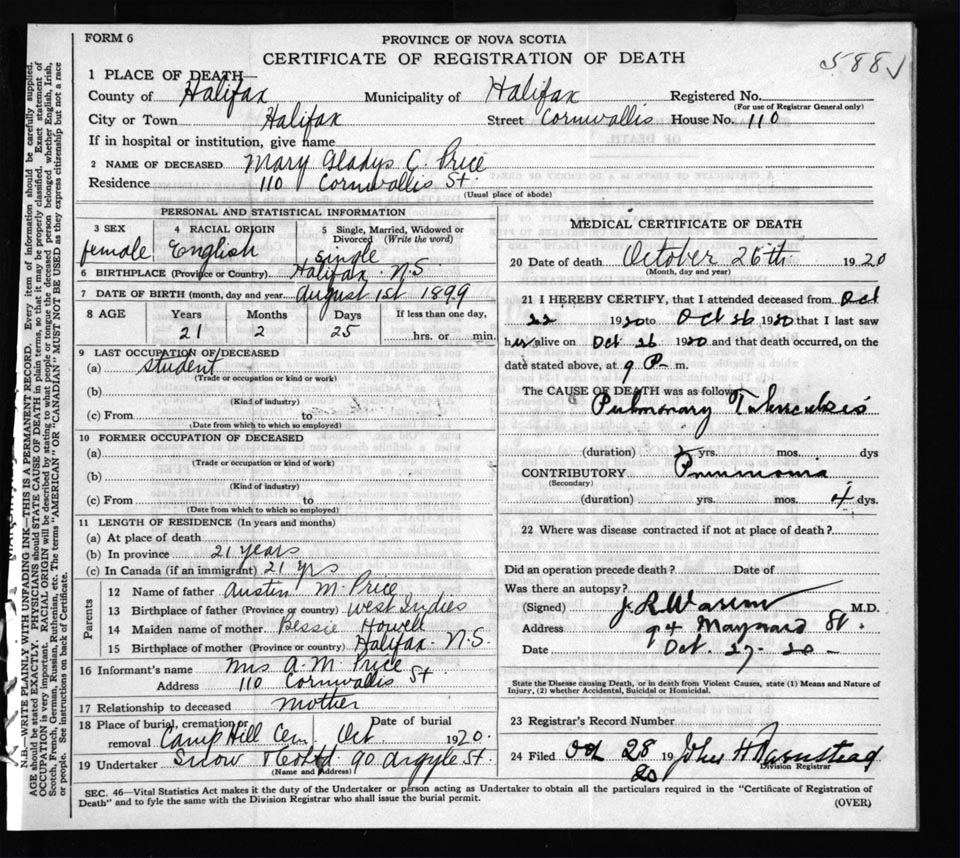 FORM 6
PROVINCE OF NOVA SCOTIA
CERTIFICATE OF REGISTRATION OF DEATH
588
1 PLACE OF DEATH—
County of Halifax Municipality of Halifax Registered No.
(For use of Registrar General only)
City or Town Halifax Street Cornwallis House No. 110
If in hospital or institution, give name
2 NAME OF DECEASED Mary Gladys C. Price
Residence 110 Cornwallis St.
(Usual place of abode)
PERSONAL AND STATISTICAL INFORMATION
3 SEX 4 RACIAL ORIGIN 5 Single, Married, Widowed or Divorced (Write the word)
female English single
6 BIRTHPLACE (Province or Country) Halifax N.S
7 DATE OF BIRTH (month, day and year) August 1st 1899
8 AGE Years Months Days If less than one day,
21 2 25 hrs. or min.
9 LAST OCCUPATION OF DECEASED
(a) student
(Trade or occupation or kind or work)
(b)
(Kind of industry)
(c) From to
(Date from which to which so employed)
10 FORMER OCCUPATION OF DECEASED
(a)
(Trade or occupation or kind or work)
(b)
(Kind of industry)
(c) From to
(Date from which to which so employed)
11 LENGTH OF RESIDENCE (In years and months)
(a) At place of death
(b) In province 21 years
(c) In Canada (if an immigrant) 21 yrs
Parents
12 Name of father Austin M. Price
13 Birthplace of father (Province or country) West Indies
14 Maiden name of mother Bessie Howell
15 Birthplace of mother (Province or country) Halifax N.S
16 Informant's name Mrs A. M. Price
Address 110 Cornwallis St
17 Relationship to deceased mother
18 Place of burial, cremation or removal Camp Hill Cem. Date of burial Oct 1920.
19 Undertaker Snow & Co Ltd 90 Argyle St.
(Name and Address)
MEDICAL CERTIFICATE OF DEATH
20 Date of death October 26th 1920
(Month, day and year)
21 I HEREBY CERTIFY, that I attended deceased from Oct
22 1920 to Oct 26 1920 that I last saw
her alive on Oct 26 1920 and that death occurred, on the
date stated above, at 9 P m.
The CAUSE OF DEATH was as follows:
Pulmonary Tuberculosis
(duration) 2 yrs. mos. dys
CONTRIBUTORY Pneumonia
(Secondary)
(duration) yrs. mos. 4 dys.
22 Where was disease contracted if not at place of death?
Did an operation precede death? Date of
Was there an autopsy?
(Signed) M.D.
Address 94 Maynard St.
Date Oct. 27- 20 -
State the Disease causing Death, or in death from Violent Causes, state (1) Means and Nature of
Injury, (2) whether Accidental, Suicidal or Homicidal.
23 Registrar's Record Number
24 Filed Oct 28 1920 John H Barnstead
Division Registrar
SEC. 46—Vital Statistics Act makes it the duty of the Undertaker or person acting as Undertaker to obtain all the particulars required in the "Certificate of Registration of
Death" and to fyle the same with the Division Registrar who shall issue the burial permit.
(OVER)
N.B.—WRITE PLAINLY WITH UNFADING INK—THIS IS A PERMANENT RECORD. Every item of information should be carefully supplied.
AGE should be stated EXACTLY. PHYSICIANS should STATE CAUSE OF DEATH in plain terms, so that it may be properly classified. Exact statement of
OCCUPATION is very important. RACIAL ORIGIN will be described by stating to what people or tongue the deceased person belonged whether English, Irish,
Scotch, French, German, Russian, Ruthenian, etc. The terms "AMERICAN" OR "CANADIAN" MUST NOT BE USED as they express citizenship but not a race
or people. See instructions on back of Certificate.